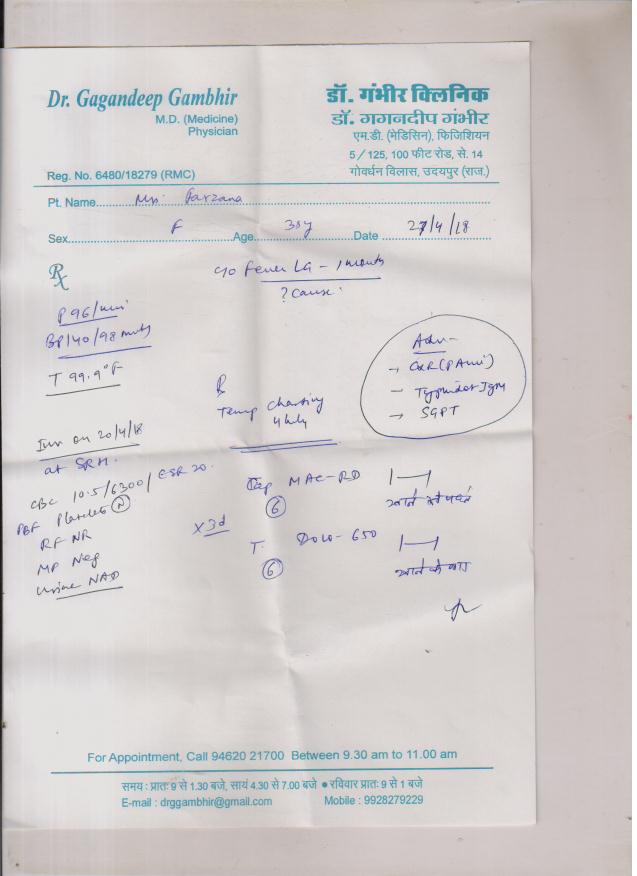 Dr. Gagandeep Gambhir
M.D. (Medicine)
Physician
Reg. No. 6480/18279 (RMC)
डॉ. गंभीर क्लिनिक
डॉ. गगनदीप गंभीर
एम.डी. (मेडिसिन), फिजिशियन
5/125, 100 फीट रोड, से. 14
गोवर्धन विलास, उदयपुर (राज.)
Pt. Name Mrs. Farzana
Sex F Age 35y Date 27/4/18
Rx
c/o Fever LG - 1 month
? Cause:
P 96/min
BP 140/98 mmHg
T 99.9°F
Adv -
→ CXR (PA view)
→ Typhidot IgM
→ SGPT
R
Temp Charting
4 hrly
Inv on 20/4/18
at SRH.
CBC 10.5/6300/ ESR 20.
PBF Platelets N
RF NR
MP Neg
Urine NAD
x 3d
Cap MAC-RD
6
खाने से पहले
T. DOLO-650
6
खाने के बाद
For Appointment, Call 94620 21700 Between 9.30 am to 11.00 am
समय : प्रातः 9 से 1.30 बजे, सायं 4.30 से 7.00 बजे ● रविवार प्रातः 9 से 1 बजे
E-mail : drggambhir@gmail.com Mobile : 9928279229